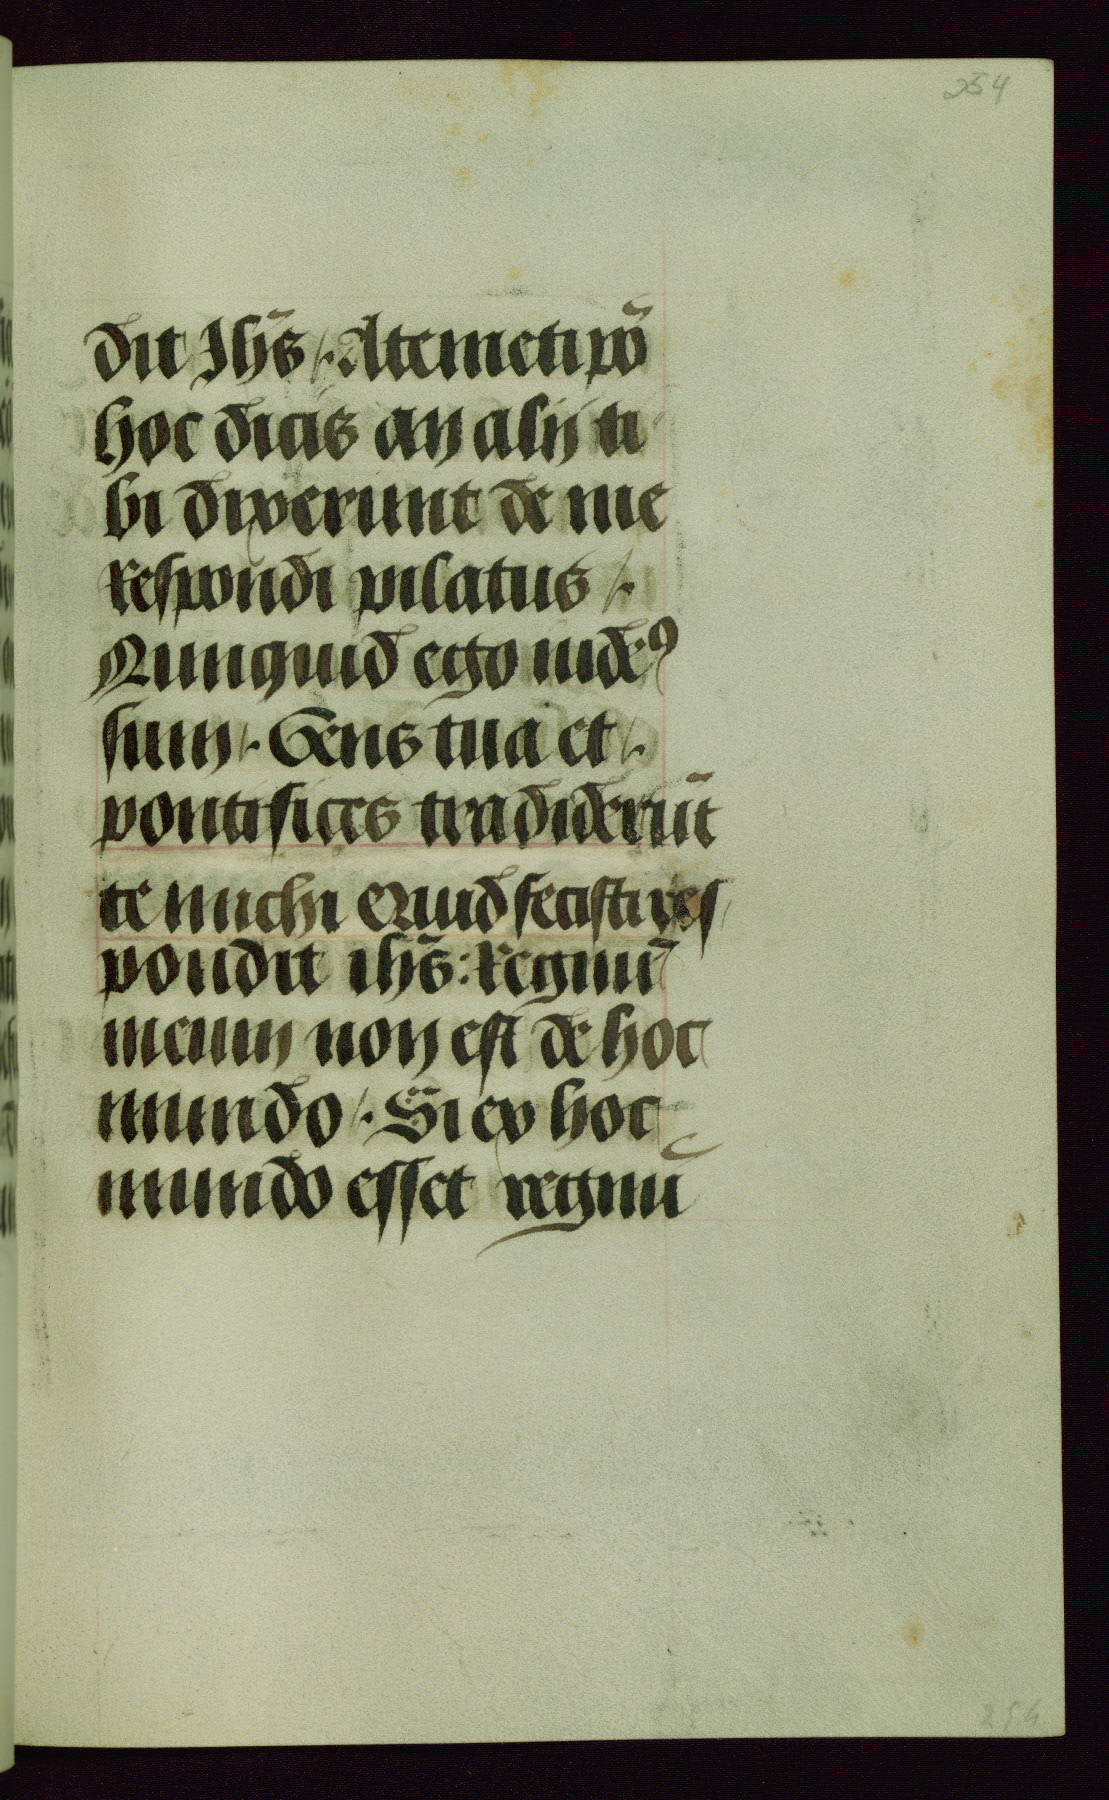 254
dit Ihs̄ /. Atemetipō
hoc dicis an alij ti
bi dixerunt de me
Respondi pilatus /.
Nunquid ego iudeꝰ
sum /. Gens tua et /.
pontifices tradiderūt
te michi Quid fecisti res
pondit ihs̄: Regnū
meum non est de hoc
mundo /. Si ex hoc
mundo esset regnū
254